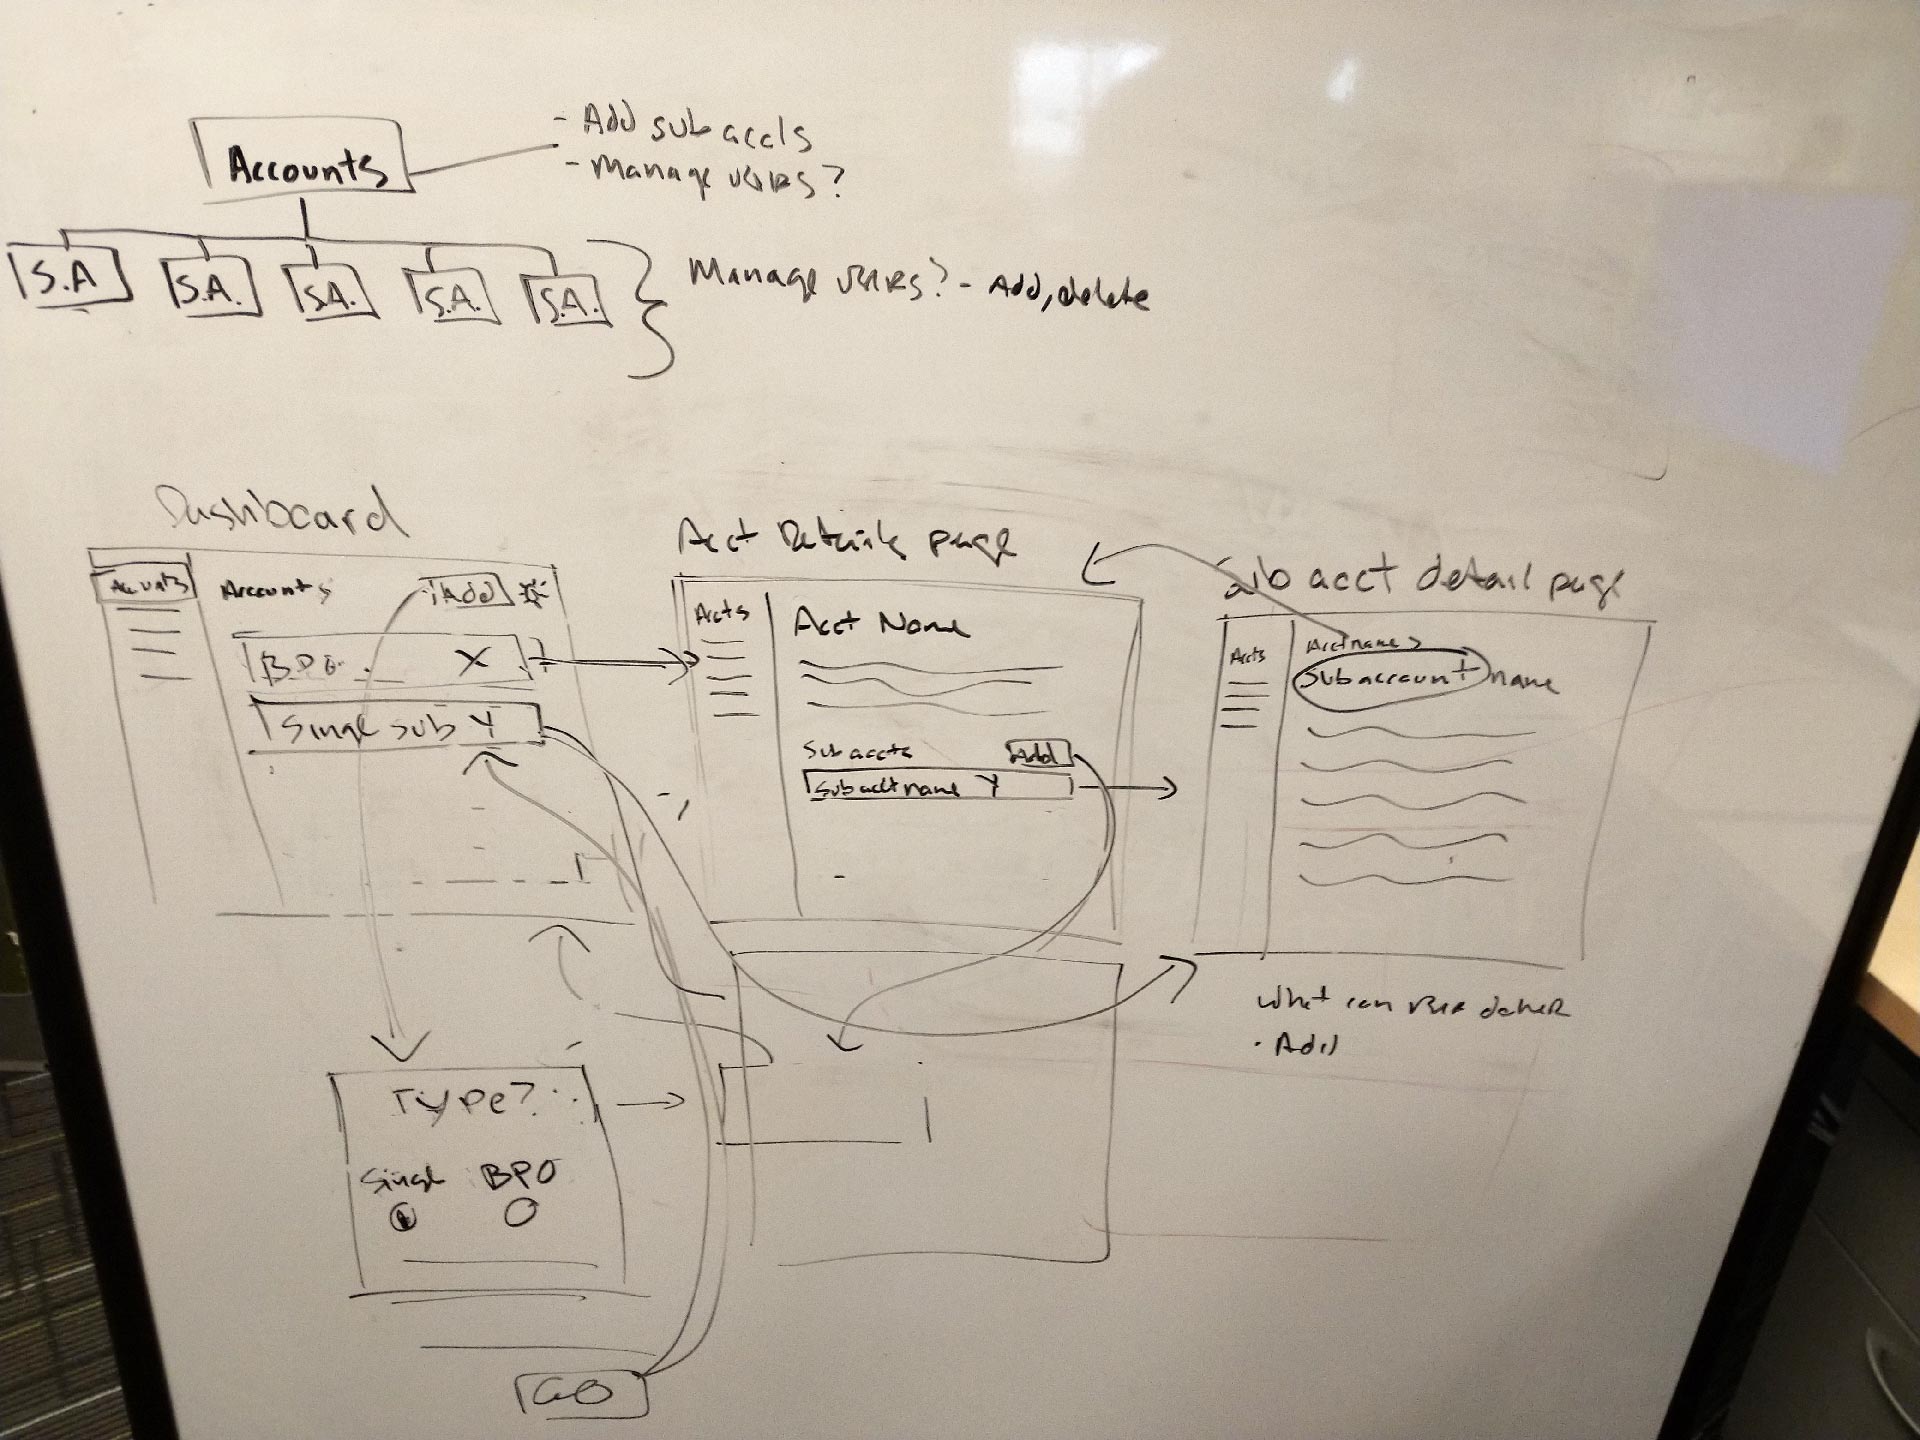 Accounts
- Add sub accts
- Manage users?
S.A
S.A.
S.A.
S.A.
S.A.
Manage users? - Add, delete
Dashboard
Accounts
Accounts
Add
BPO
X
Single sub Y
Acct Details page
Accts
Acct Name
Sub accts
Add
Sub acct name Y
Sub acct detail page
Accts
Acct name >
Subaccount name
What can user do here
· Add
Type?
Single
BPO
GO